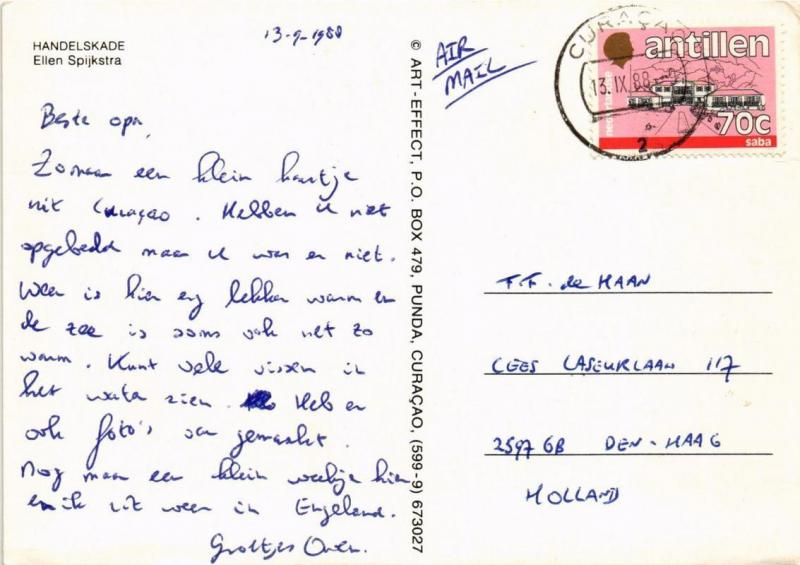 HANDELSKADE
Ellen Spijkstra
13-9-1988
Beste opa,
Zomaar een klein kaartje
uit Curaçao. Hebben u net
opgebeld maar u was er niet.
Weer is hier erg lekker warm en
de zee is soms ook net zo
warm. Kunt vele vissen in
het water zien. Heb er
ook foto's van gemaakt.
Nog maar een klein weekje hier
en ik zit weer in Engeland.
Groetjes
© ART-EFFECT, P.O. BOX 479, PUNDA, CURAÇAO, (599-9) 673027
AIR
MAIL
CURAÇAO
13.IX.88
2
nederlandse
antillen
70c
saba
F.F. de HAAN
CEES LASEURLAAN 117
2597 GB DEN-HAAG
HOLLAND